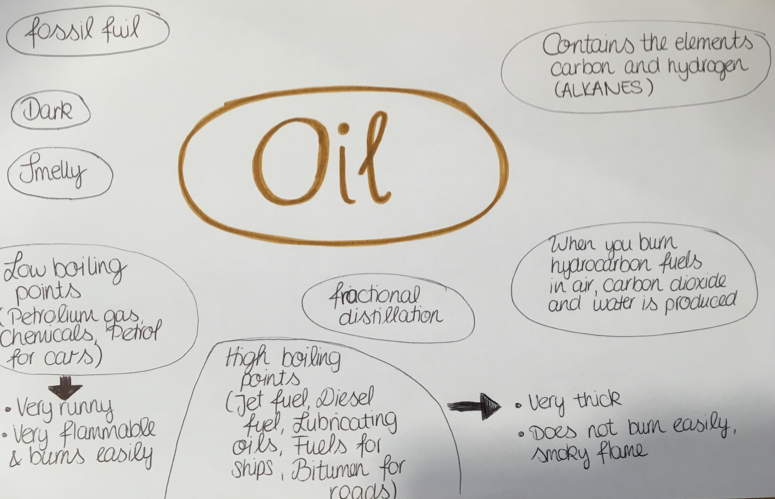 fossil fuil
Contains the elements
carbon and hydrogen
(ALKANES)
Dark
Oil
Smelly
Low boiling
points
(Petrolium gas,
Chemicals, Petrol
for cars)
fractional
distillation
When you burn
hydrocarbon fuels
in air, carbon dioxide
and water is produced
• Very runny
• Very flammable
& burns easily
High boiling
points
(Jet fuel, Diesel
fuel, Lubricating
oils, Fuels for
ships, Bitumen for
roads)
• Very thick
• Does not burn easily,
smoky flame